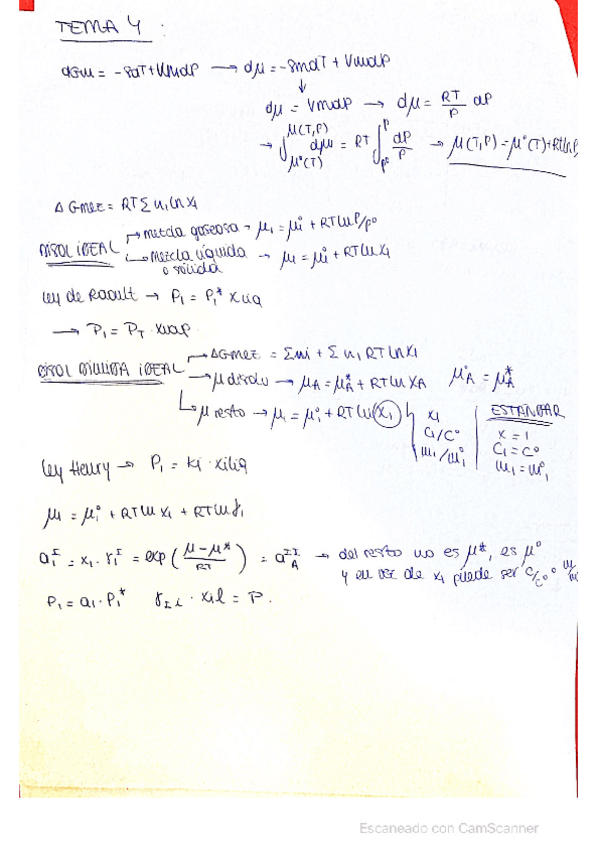 TEMA 4 :
dGm = -SdT + VmdP → dμ = -SmdT + VmdP
↓
dμ = VmdP → dμ = RT/P dP
→ ∫_{μ°(T)}^{μ(T,P)} dμ = RT ∫_{P°}^{P} dP/P → μ(T,P) = μ°(T) + RT ln P/
ΔGmez = RT Σ ni ln xi
DISOL IDEAL → mezcla gaseosa → μi = μi° + RT ln P/P°
→ Mezcla líquida o sólida → μi = μi° + RT ln xi
Ley de Raoult → Pi = Pi* xliq
→ Pi = PT · xvap
DISOL DILUIDA IDEAL → ΔGmez = Σ ni + Σ ni RT ln xi
→ μ disolv → μA = μA* + RT ln XA μ°A = μA*
→ μ resto → μi = μi° + RT ln (xi)
xi
ci/c°
mi/m°i
ESTÁNDAR
x = 1
ci = c°
mi = m°i
Ley Henry → Pi = Ki · xiliq
μi = μi° + RT ln xi + RT ln γi
ai^I = xi · γi^I = exp( (μ-μ*)/RT ) = a^II_A → del resto no es μ*, es μ°
y en vez de xi puede ser c/c° o m/m
Pi = ai · Pi* γIi · xil = P.
Escaneado con CamScanner